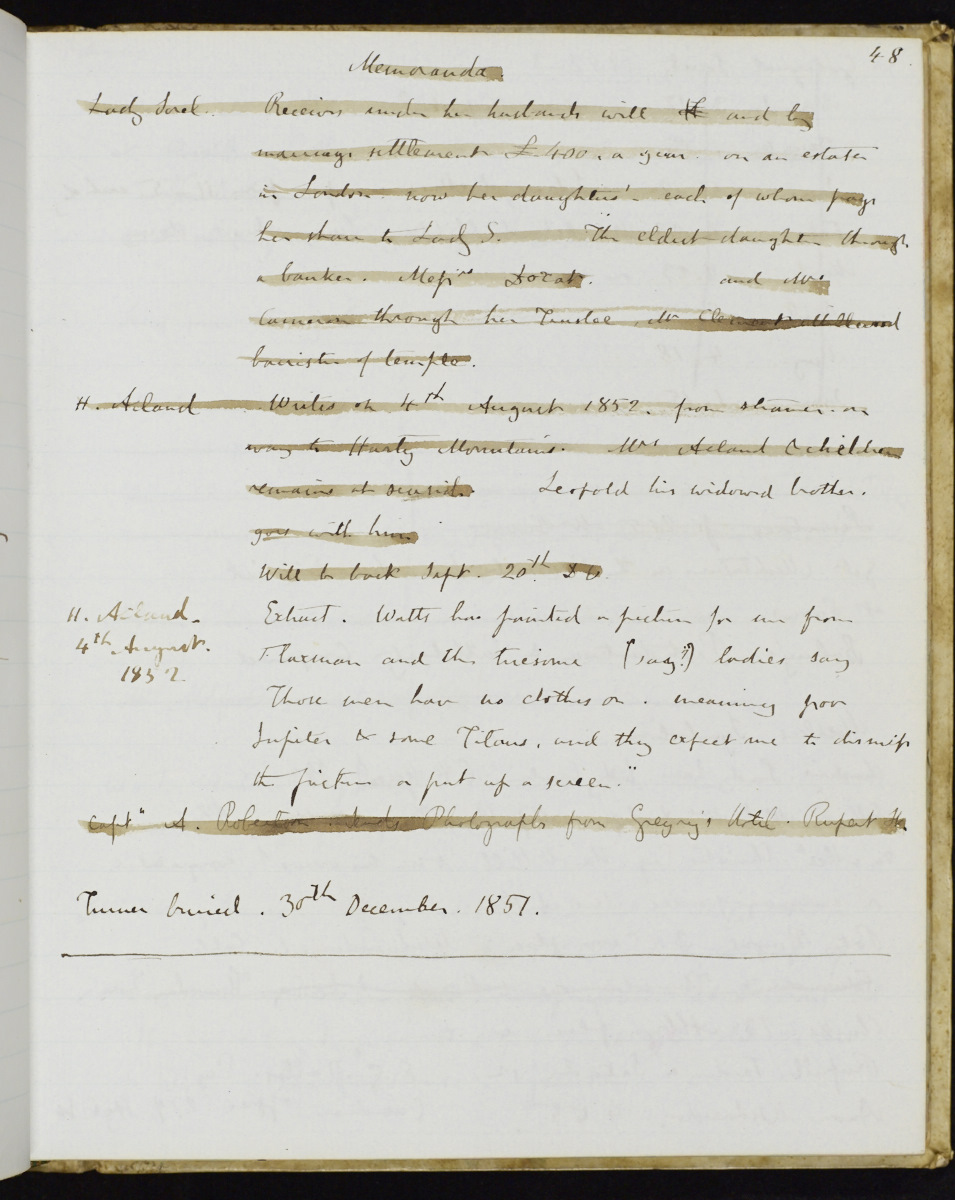 48
Memoranda.
Lady Sorel. Receives under her husbands will and by
marriage settlement £400. a year. on an estate
in London. now her daughters' - each of whom pays
her share to Lady S. The eldest daughter through
a banker. Messrs and Mrs
Cameron through her Trustee, Mr
barrister of temple.
H. Acland Writes on 4th August 1852. from steamer. on
way to Mountains. Mrs Acland & children
remains at seaside. Leopold his widowed brother.
goes with him
Will be back Sept. 20th. Do.
H. Acland. Extract. Watts has painted a picture for me from
4th August. Flaxman and the tiresome [say?] ladies say
1852. Those men have no clothes on. meaning poor
Jupiter & some Titans, and they expect me to dismiss
the picture or put up a screen."
Captn A. Robertson. Photographs from Gregory's Hotel. Rupert St.
Turner buried. 30th December. 1851.